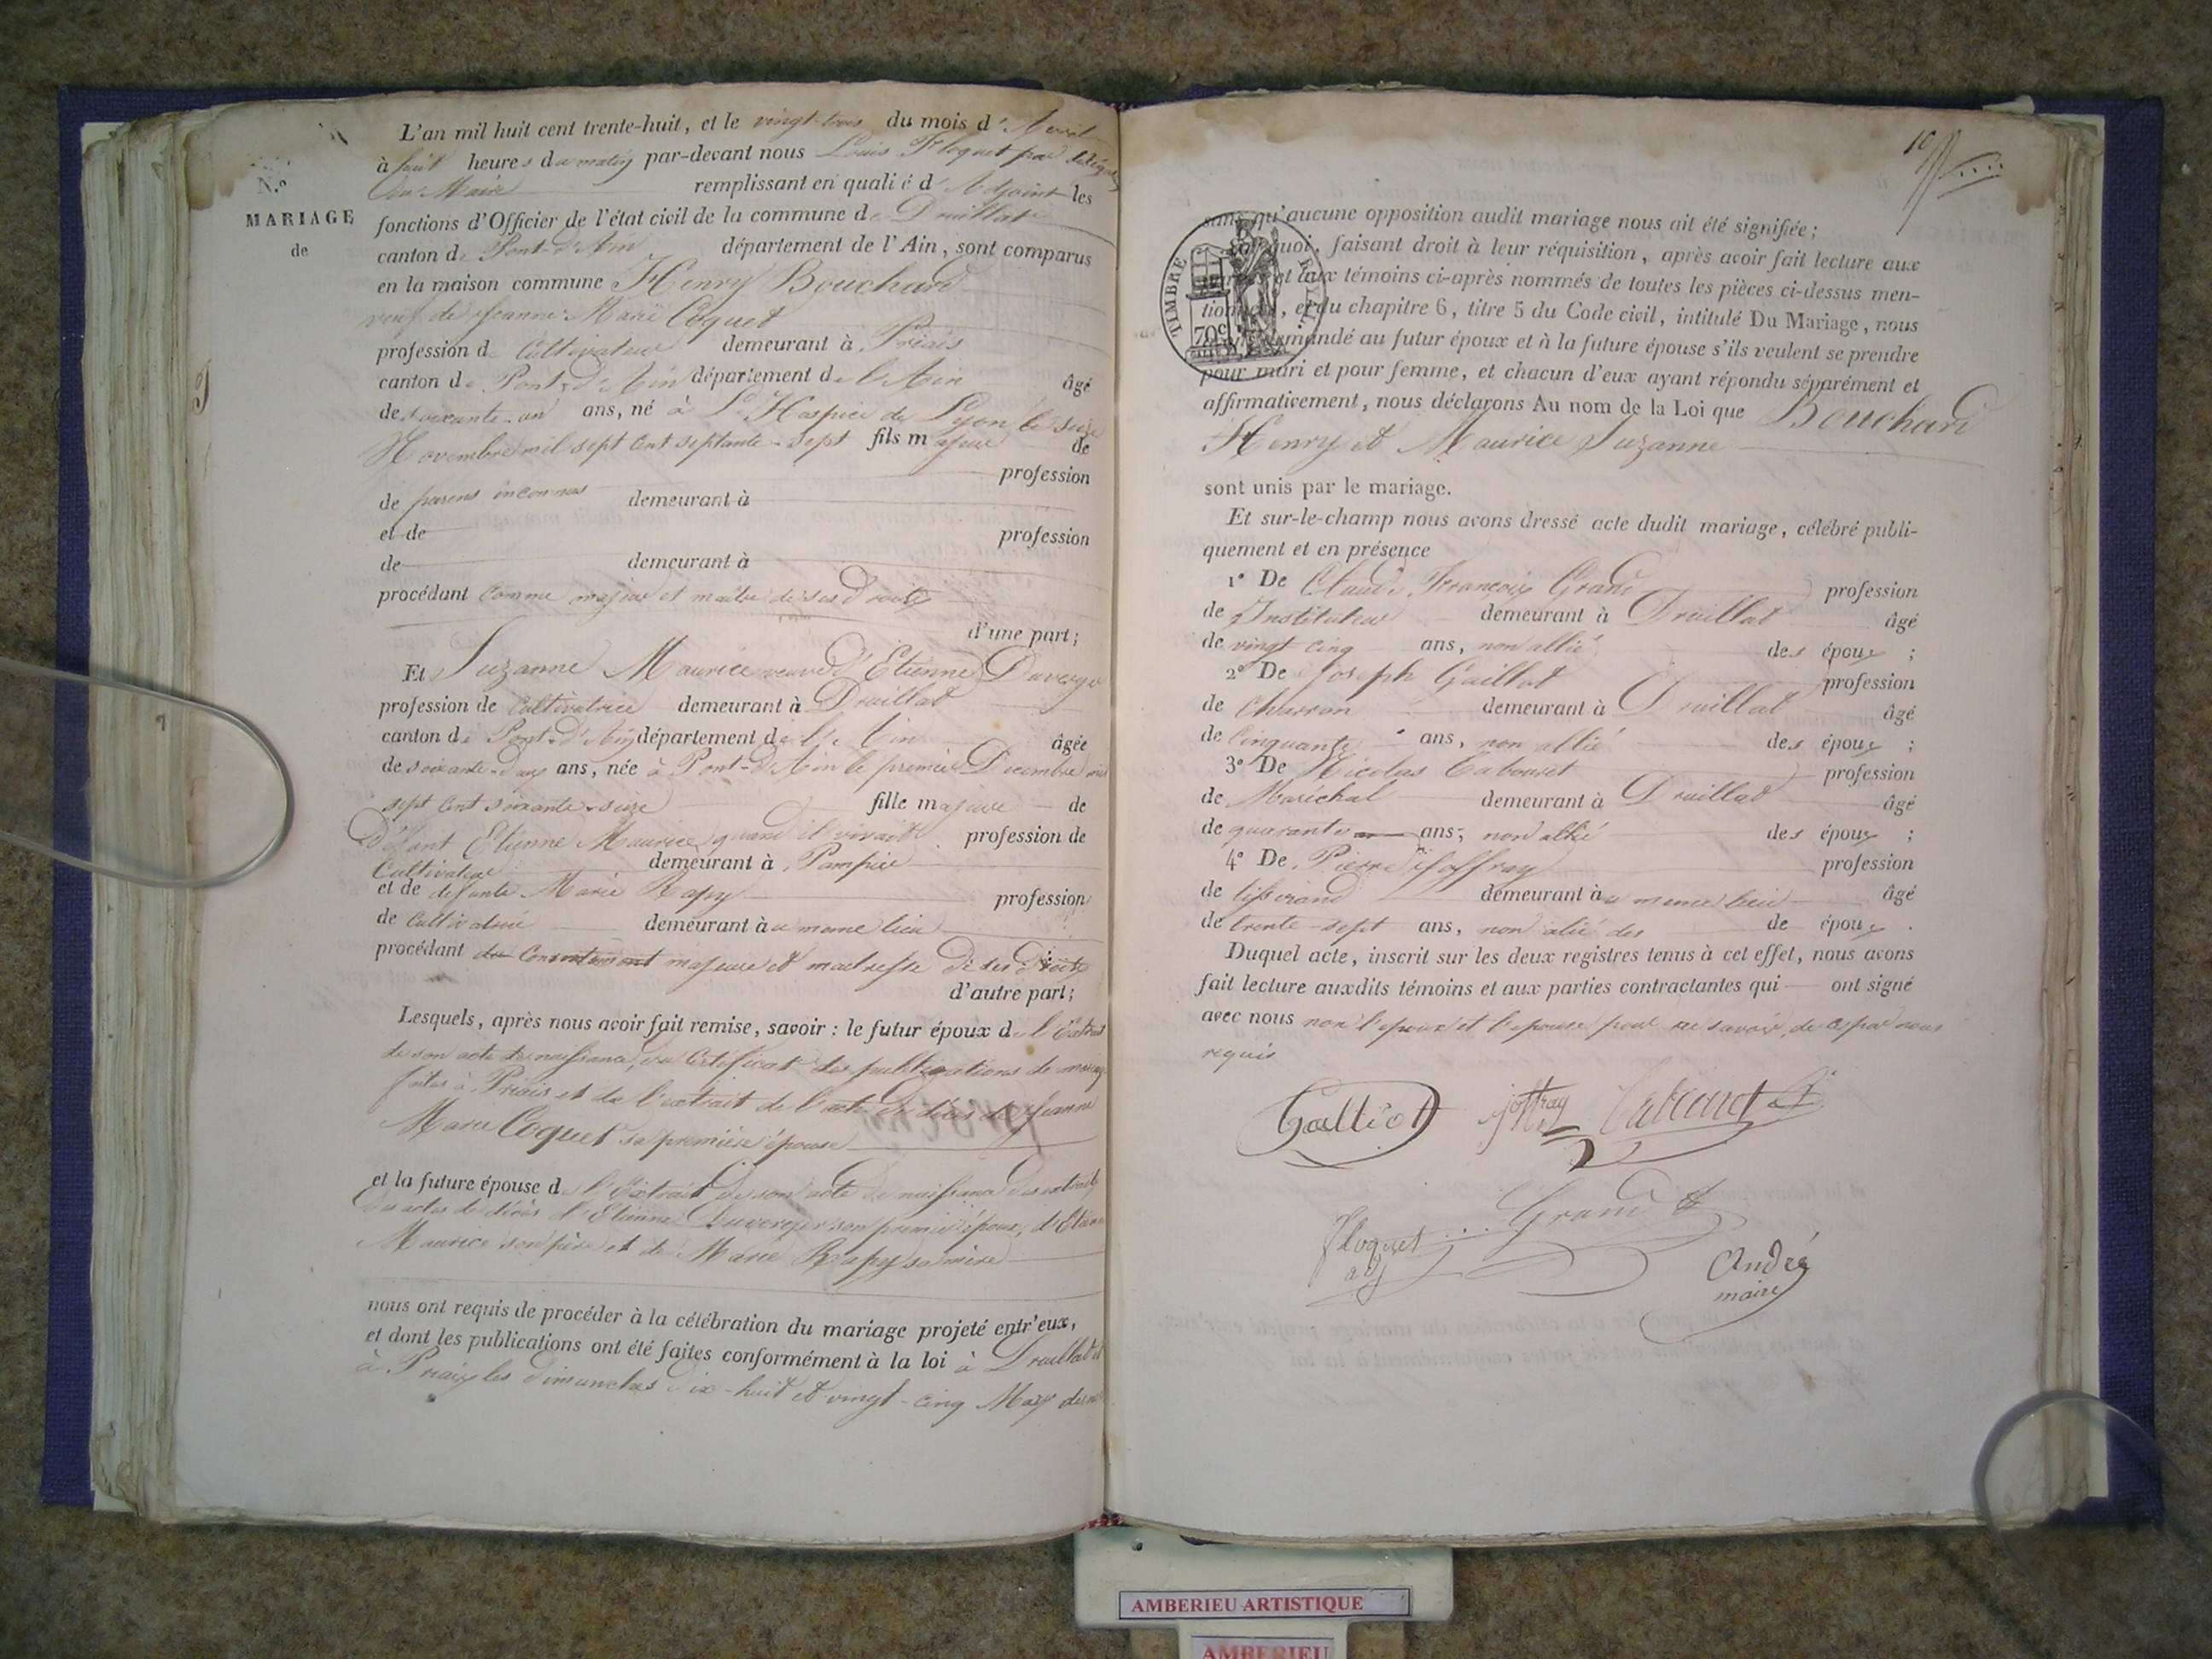 L'an mil huit cent trente-huit, et le vingt-trois du mois d'Avril
à huit heures du matin par-devant nous Louis Floquet par délégation
du Maire remplissant en qualité d'Adjoint les
N.o
MARIAGE
de
fonctions d'Officier de l'état civil de la commune de Druillat
canton de Pont-d'Ain département de l'Ain, sont comparus
en la maison commune Henry Bouchard
veuf de Jeanne Marie Coquet
profession de Cultivateur demeurant à Priais
canton de Pont-d'Ain département de l'Ain âgé
de soixante-un ans, né à L'Hospice de Lyon le seize
Novembre mil sept cent septante-sept fils majeur de
profession
de parens inconnus demeurant à
et de profession
de demeurant à
procédant comme majeur et maître de ses Droits
d'une part;
Et Suzanne Maurice veuve d'Etienne Duverger
profession de Cultivatrice demeurant à Druillat
canton de Pont-d'Ain département de l'Ain âgée
de soixante-deux ans, née à Pont-d'Ain le premier Décembre mil
sept cent soixante-seize fille majeure de
Défunt Etienne Maurice quand il vivait profession de
Cultivateur demeurant à Pampier
et de défunte Marie Rapy profession
de Cultivatrice demeurant au même lieu
procédant du Consentement majeure et maitresse de ses Droits
d'autre part;
Lesquels, après nous avoir fait remise, savoir: le futur époux de l'Extrait
de son acte de naissance, du Certificat des publications de mariage
faites à Priais et de l'extrait de l'acte de décès de Jeanne
Marie Coquet sa première épouse
et la future épouse de l'Extrait de son acte de naissance des extraits
des actes de décès d'Etienne Duverger son premier époux, d'Etienne
Maurice son père et de Marie Rapy sa mère
nous ont requis de procéder à la célébration du mariage projeté entr'eux,
et dont les publications ont été faites conformément à la loi à Druillat et
à Priay les dimanches dix-huit et vingt-cinq Mars dernier
10
sans qu'aucune opposition audit mariage nous ait été signifiée;
quoi, faisant droit à leur réquisition, après avoir fait lecture aux
et aux témoins ci-après nommés de toutes les pièces ci-dessus men-
tionnées, et du chapitre 6, titre 5 du Code civil, intitulé Du Mariage, nous
demandé au futur époux et à la future épouse s'ils veulent se prendre
pour mari et pour femme, et chacun d'eux ayant répondu séparément et
affirmativement, nous déclarons Au nom de la Loi que Bouchard
Henry et Maurice Suzanne
TIMBRE ROYAL
70c
sont unis par le mariage.
Et sur-le-champ nous avons dressé acte dudit mariage, célébré publi-
quement et en présence
1° De Claude François Grand profession
de Instituteur demeurant à Druillat âgé
de vingt cinq ans, non allié des époux;
2° De Joseph Gaillot profession
de Charron demeurant à Druillat âgé
de Cinquante ans, non allié des époux;
3° De Nicolas Cabouret profession
de Maréchal demeurant à Druillat âgé
de quarante ans; non allié des époux;
4° De Pierre Joffray profession
de tisserand demeurant au meme lieu âgé
de trente-sept ans, non alié des de époux.
Duquel acte, inscrit sur les deux registres tenus à cet effet, nous avons
fait lecture auxdits témoins et aux parties contractantes qui ont signé
avec nous non l'époux et l'épouse pour ne savoir, de ce par nous
requis
Galliot joffray Cabouret
Floquet Grand
adj
André
maire
AMBERIEU ARTISTIQUE
AMBERIEU